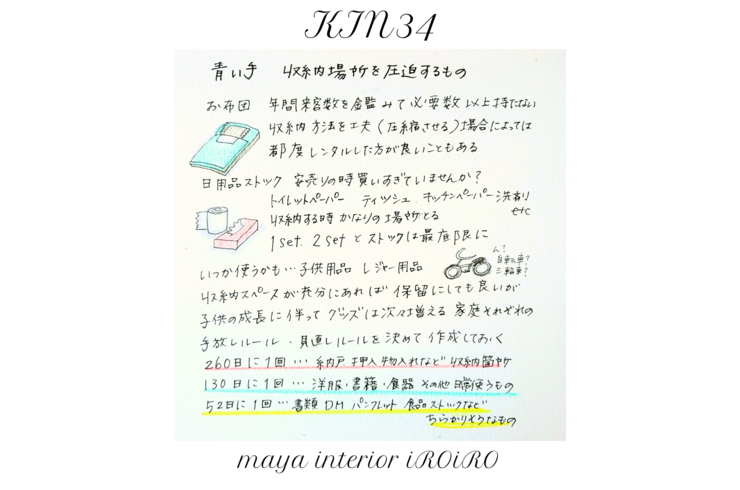 KIN34
青い手 収納場所を圧迫するもの
お布団 年間来客数を金監みて必要数以上持たない
収納方法を工夫(圧縮させる)場合によっては
都度レンタルした方が良いこともある
日用品ストック 安売りの時買いすぎていませんか?
トイレットペーパー ティッシュ、キッチンペーパー 洗剤
etc
収納する時かなりの場所とる
1set. 2setとストックは最底限に
いつか使うかも…子供用品 レジャー用品
ん?
自転車?
三輪車?
収納スペースが充分にあれば保留にしても良いが
子供の成長に伴ってグッズは次々増える 家庭それぞれの
手放しルール・見直しルールを決めて作成しておく
260日に1回…納戸 押入 物入れなど収納箇所
130日に1回…洋服・書籍・食器 その他日常使うもの
52日に1回…書類 DM パンフレット 食品ストックなど
ちらかりそうなもの
maya interior iROiRO